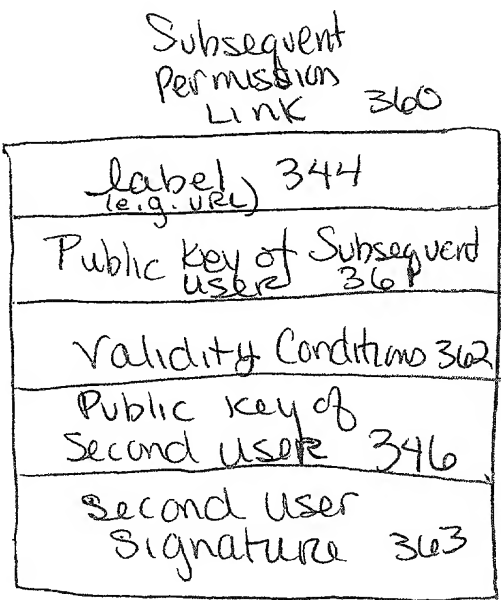 Subsequent
Permission
Link 360
label 344
(e.g. URL)
Public Key of Subsequent
user 361
Validity Conditions 362
Public Key of
Second user 346
Second user
Signature 363